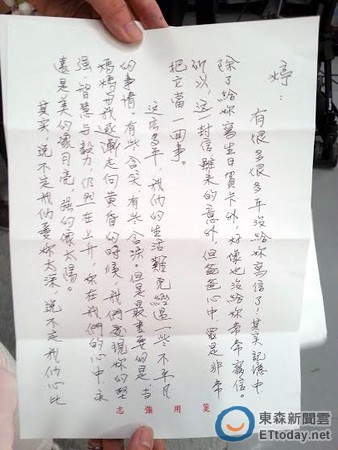 婷：
有很多很多年沒給妳寫信了！其實記憶中
除了給妳寫生日賀卡外，好像也沒給妳常常寫信。
所以，這一封信雖來的意外，但爸爸心中還是非常
把它當一回事。
這麼多年，我們的生活難免經過一些不平凡
的事情，有些含笑，有些含淚。但是最重要的是當
媽媽與我逐漸走向黃昏的時候，我們發現妳的堅
強、智慧與毅力，仍然在上升，妳在我們的心中永
遠是美的像月亮，強的像太陽。
其實，說不定我們愛妳太深，說不定我們心此
志強用箋
東森新聞雲
ETtoday.net